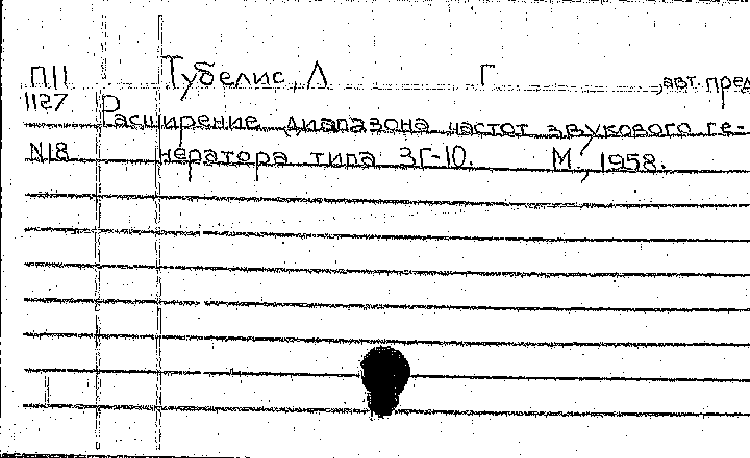 П11 Тубелис, Л Г , авт. пред
1127 Расширение диапазона частот звукового ге-
N18 нератора типа ЗГ-10. М., 1958.